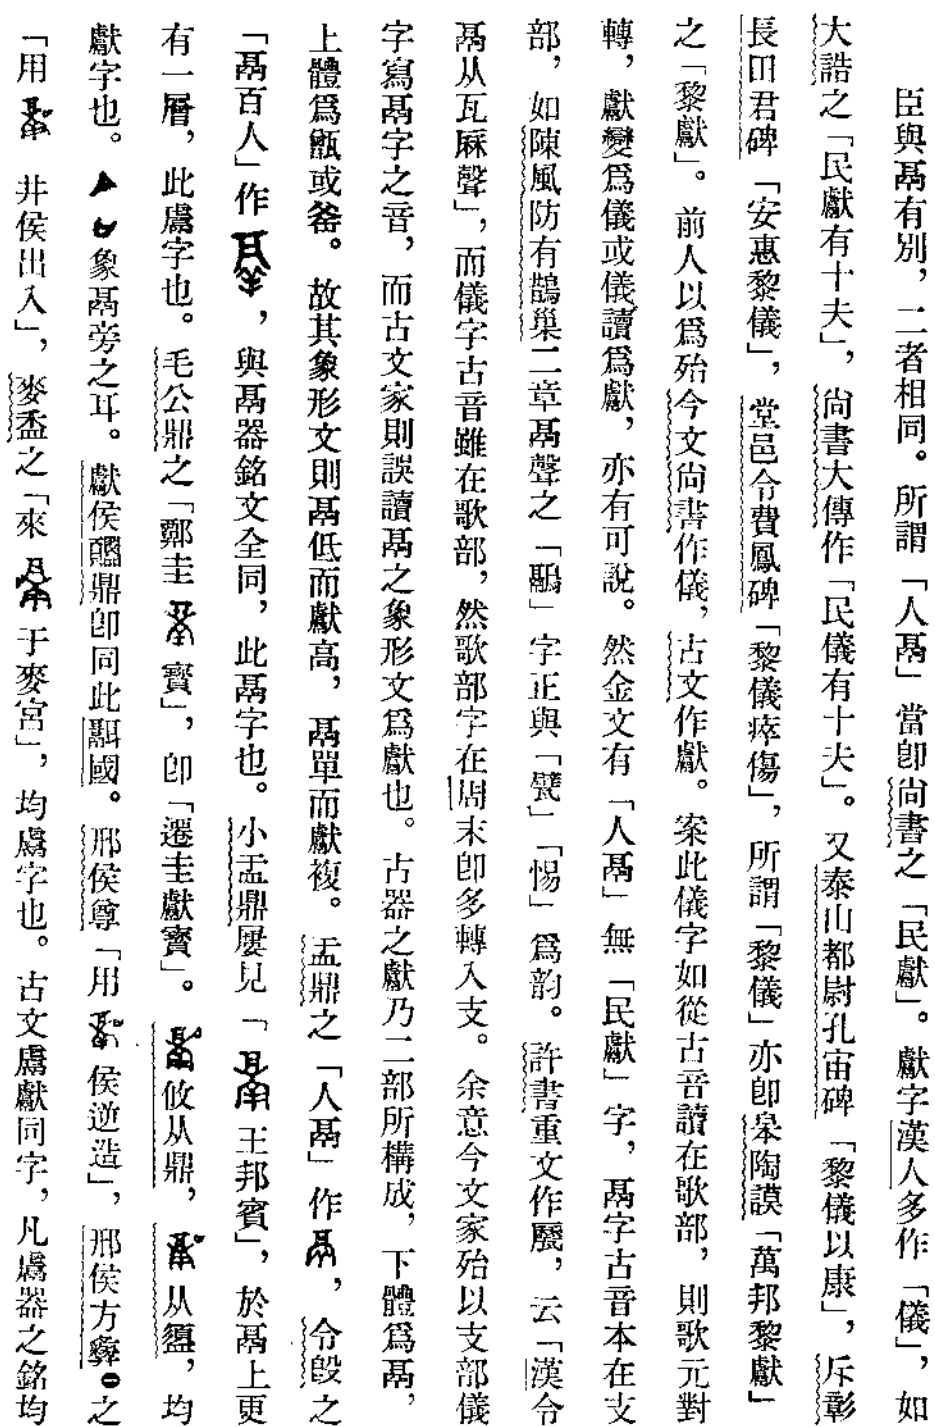 臣與鬲有別，二者相同。所謂「人鬲」當卽尚書之「民獻」。獻字漢人多作「儀」，如
大誥之「民獻有十夫」，尚書大傳作「民儀有十夫」。又泰山都尉孔宙碑「黎儀以康」，斥彰
長田君碑「安惠黎儀」，堂邑令費鳳碑「黎儀瘁傷」，所謂「黎儀」亦卽皋陶謨「萬邦黎獻」
之「黎獻」。前人以爲殆今文尚書作儀，古文作獻。案此儀字如從古音讀在歌部，則歌元對
轉，獻變爲儀或儀讀爲獻，亦有可說。然金文有「人鬲」無「民獻」字，鬲字古音本在支
部，如陳風防有鵲巢二章鬲聲之「鷊」字正與「甓」「惕」爲韵。許書重文作䰛，云「漢令
鬲从瓦厤聲」，而儀字古音雖在歌部，然歌部字在周末卽多轉入支。余意今文家殆以支部儀
字寫鬲字之音，而古文家則誤讀鬲之象形文爲獻也。古器之獻乃二部所構成，下體爲鬲，
上體爲甑或釜。故其象形文則鬲低而獻高，鬲單而獻複。盂鼎之「人鬲」作，令𣪘之
「鬲百人」作，與鬲器銘文全同，此鬲字也。小盂鼎屢見「王邦賓」，於鬲上更
有一層，此鬳字也。毛公鼎之「鄭圭寶」，卽「遷圭獻寶」。攸从鼎，从盨，均
獻字也。象鬲旁之耳。獻侯鼎卽同此國。邢侯尊「用侯逆造」，邢侯方彝之
「用井侯出入」，麥盉之「來于麥宮」，均鬳字也。古文鬳獻同字，凡鬳器之銘均